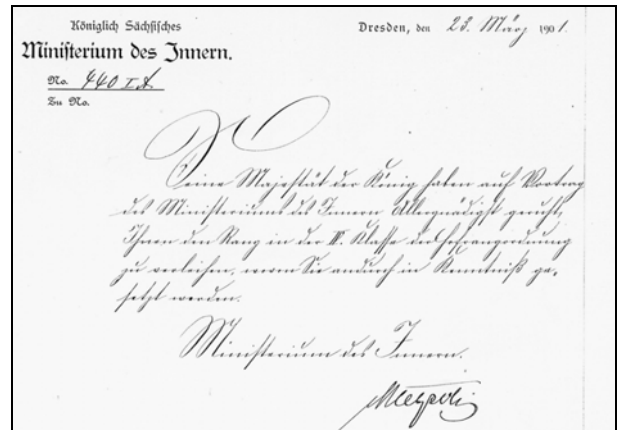 Königlich Sächsisches
Ministerium des Innern.
Dresden, den 23. März 1901.
No. 440 I A
Zu No.
Seine Majestät der König haben auf Vortrag
des Ministeriums des Innern Allergnädigst geruht,
Ihnen den Rang in der IV. Klasse der Hofrangordnung
zu verleihen, wovon Sie andurch in Kenntniß ge-
setzt werden.
Ministerium des Innern.